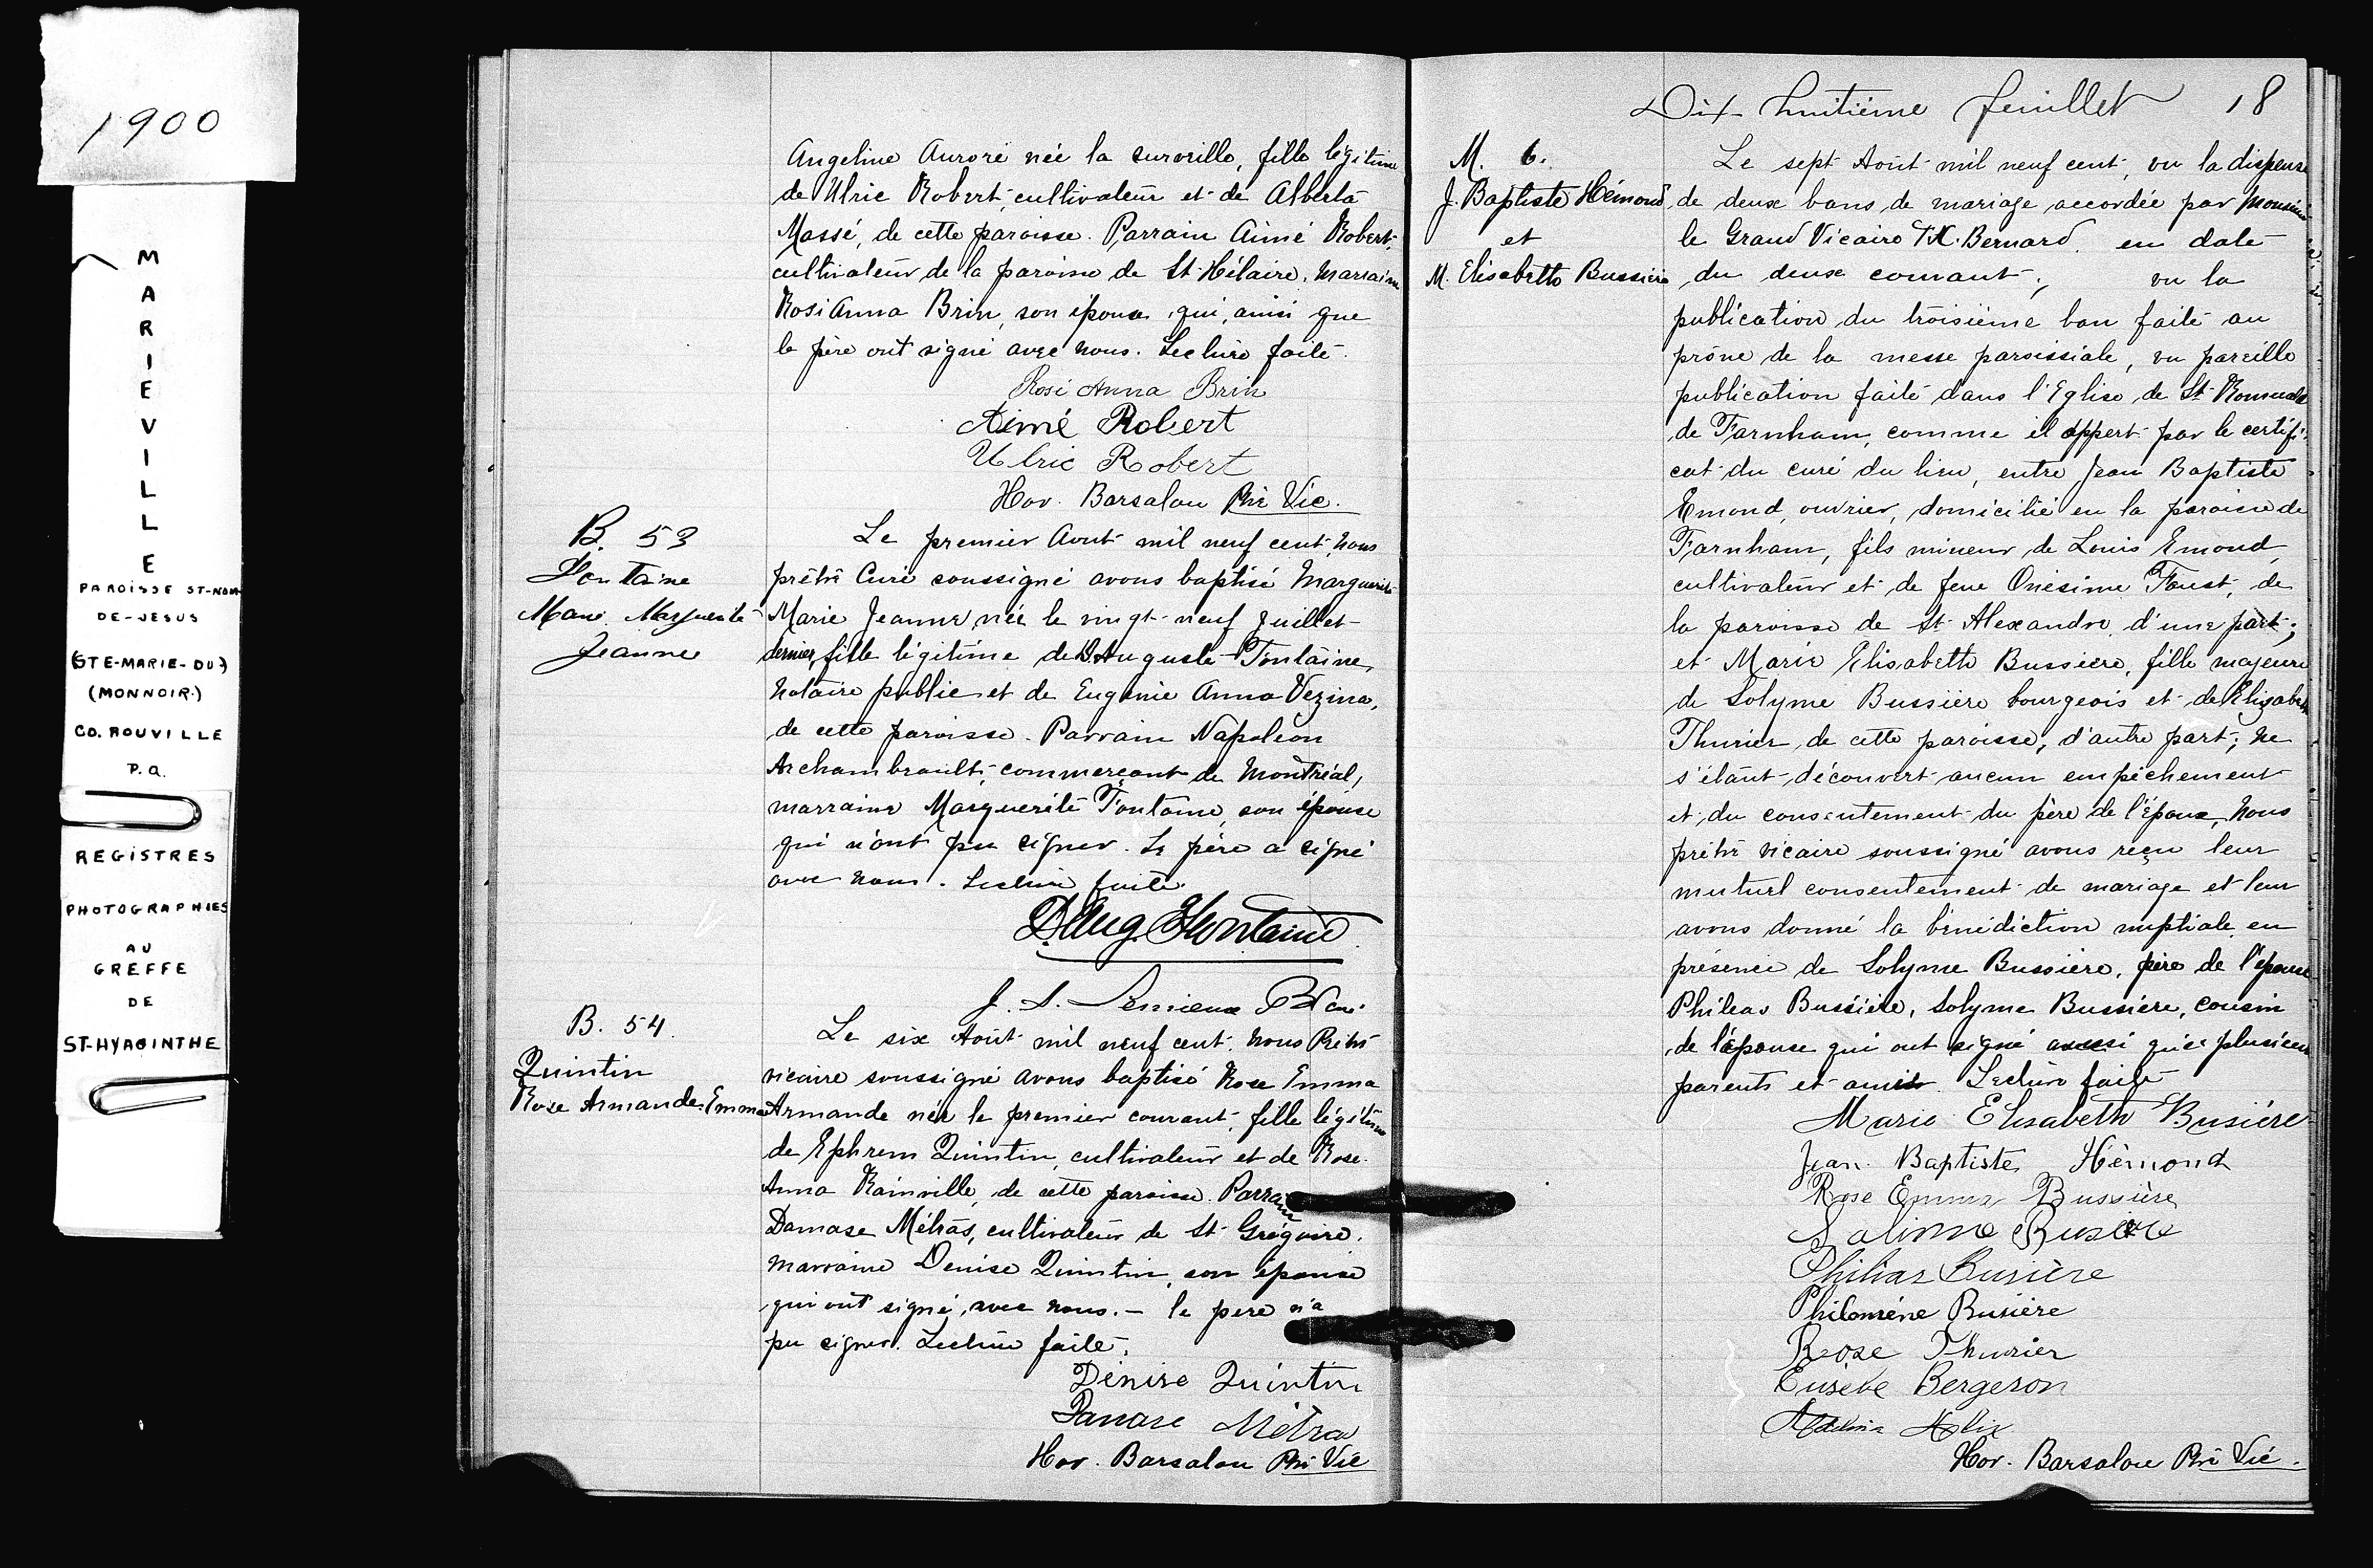 1900
MARIEVILLE
PAROISSE ST-NOM
DE-JESUS
(STE-MARIE-DU)
(MONNOIR.)
CO. ROUVILLE
P.Q.
REGISTRES
PHOTOGRAPHIES
AU
GREFFE
DE
ST-HYACINTHE
Angeline Aurore née la surveille, fille légitime
de Ulric Robert, cultivateur et de Alberta
Massé, de cette paroisse. Parrain Aimé Robert,
cultivateur de la paroisse de St-Hilaire, marraine
Rosi Anna Brin, son épouse qui, ainsi que
le père ont signé avec nous. Lecture faite.
Rosi Anna Brin
Aimé Robert
Ulric Robert
Hor. Barsalou Ptre Vic.
B. 53
Fontaine
Marie Marguerite
Jeanne
Le premier Aout mil neuf cent, nous
prêtre Curé soussigné avons baptisé Marguerite
Marie Jeanne, née le vingt-neuf Juillet
dernier, fille légitime de D. Auguste Fontaine,
notaire public et de Eugénie Anna Vezina,
de cette paroisse. Parrain Napoléon
Archambault, commerçant de Montréal,
marraine Marguerite Fontaine, son épouse
qui n'ont pu signer. Le père a signé
avec nous. Lecture faite.
D. Aug. Fontaine
J. S. Lemieux
B. 54.
Quintin
Rose Armande Emma
Le six Août mil neuf cent, nous Prêtre
vicaire soussigné avons baptisé Rose Emma
Armande née le premier courant, fille légitime
de Ephrem Quintin, cultivateur et de Rose-
Anna Rainville, de cette paroisse. Parrain
Damase Métras, cultivateur de St-Grégoire,
marraine Denise Quintin, son épouse
qui ont signé, avec nous. — le père n'a
pu signer. Lecture faite.
Dénise Quintin
Damase Métra
Hor. Barsalou Ptre Vic
Dix-huitième feuillet 18
M. 6.
J. Baptiste Hémond
et
M. Elisabeth Bussière
Le sept Août mil neuf cent, vu la dispense
de deux bans de mariage accordée par Monsieur
le Grand Vicaire Bernard en date
du deux courant; vu la
publication du troisième ban faite au
prône de la messe paroissiale, vu pareille
publication faite dans l'Eglise de St-Romuald
de Farnham, comme il appert par le certifi-
cat du curé du lieu, entre Jean Baptiste
Emond, ouvrier, domicilié en la paroisse de
Farnham, fils mineur de Louis Emond,
cultivateur et de feue Onésime Foust, de
la paroisse de St-Alexandre, d'une part;
et Marie Elisabeth Bussiere, fille majeure
de Solyme Bussière bourgeois et de Elizabeth
Thurier, de cette paroisse, d'autre part; ne
s'étant découvert aucun empêchement
et du consentement du père de l'époux, nous
prêtre vicaire soussigné avons reçu leur
mutuel consentement de mariage et leur
avons donné la bénédiction nuptiale en
présence de Solyme Bussière, père de l'épouse
Philéas Bussière, Solyme Bussière, cousin
de l'épouse qui ont signé aussi que plusieurs
parents et amis. Lecture faite
Marie Elisabeth Busière
Jean Baptiste Hémond
Rose Emma Bussière
Salime
Philias Busière
Philoméne Busière
Rose Thurier
Eusèbe Bergeron
Hor. Barsalou Ptre Vic.